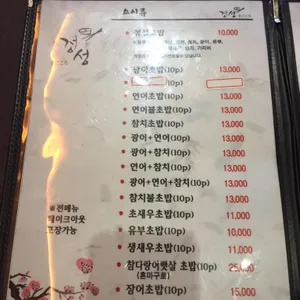 스시류
갱성
갱성초밥 10,000
광어초밥(10p) 13,000
(10p)
연어초밥(10p) 13,000
연어불초밥(10p) 13,000
참치초밥(10p) 13,000
광어+연어(10p) 13,000
광어+참치(10p) 13,000
연어+참치(10p) 13,000
광어+연어+참치(10p) 13,000
참치불초밥(10p) 13,000
초새우초밥(10p) 11,000
유부초밥(10p) 10,000
생새우초밥(10p) 11,000
참다랑어뱃살 초밥(10p) 25,000
(혼마구로)
장어초밥(10p) 15,000
※전메뉴
테이크아웃
포장가능